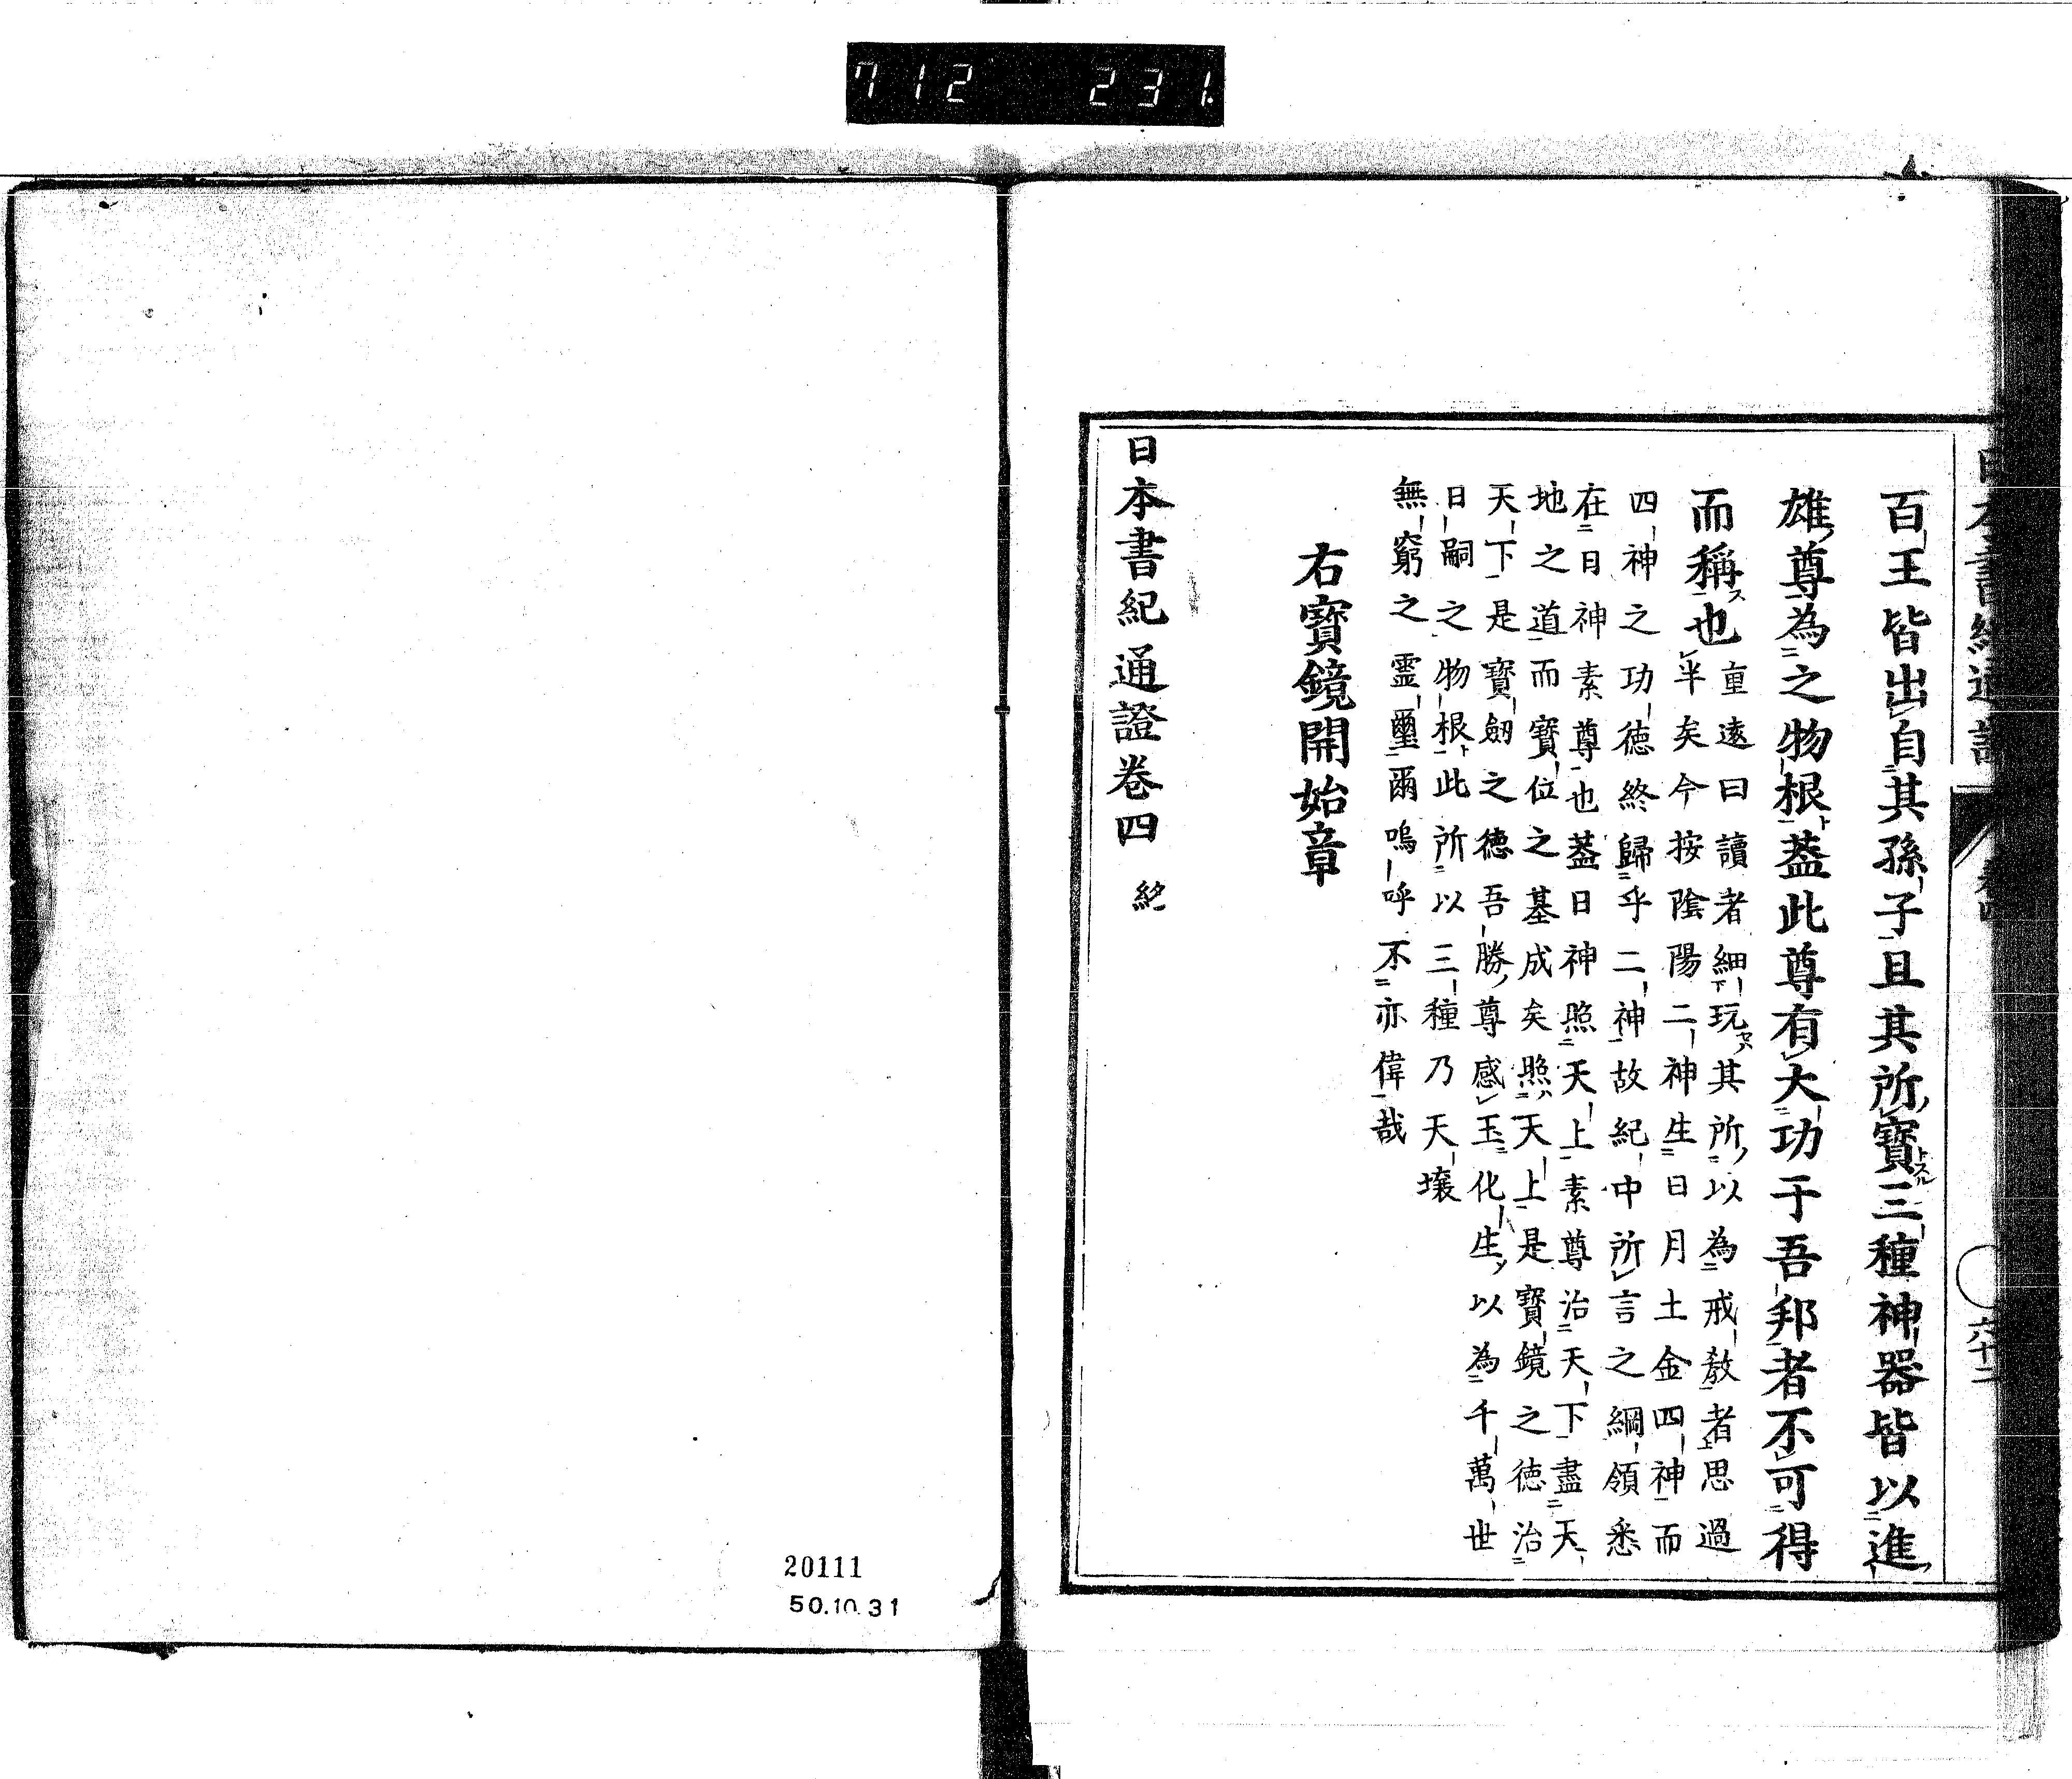 712 231
百王皆出自其孫子且其所寶三種神器皆以進
雄尊為之物根蓋此尊有大功于吾邦者不可得
而稱也
重遠曰讀者細玩其所以為戒教者思過
半矣今按陰陽二神生日月土金四神而
四神之功德終歸乎二神故紀中所言之綱領悉
在日神素尊也蓋日神照天上素尊治天下盡天
地之道而寶位之基成矣照天上是寶鏡之德治
天下是寶劒之德吾勝尊感玉化生以為千萬世
日嗣之物根此所以三種乃天壤
無窮之靈璽爾嗚呼不亦偉哉
右寶鏡開始章
日本書紀通證卷四 終
六十二
20111
50.10.31